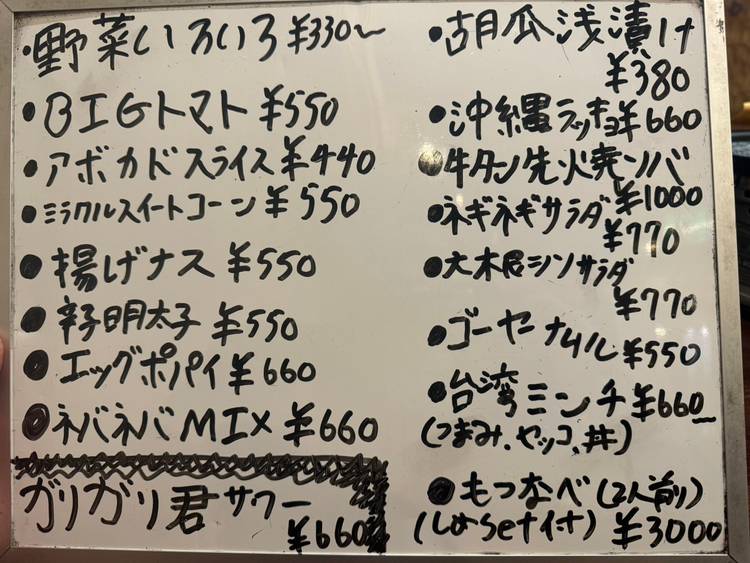 ・野菜いろいろ ¥330〜
・BIGトマト ¥550
・アボカドスライス ¥440
・ミラクルスイートコーン ¥550
・揚げナス ¥550
・辛子明太子 ¥550
・エッグポパイ ¥660
・ネバネバMIX ¥660
ガリガリ君サワー
¥660
・胡瓜浅漬け
¥380
・沖縄ラッキョ ¥660
・牛タン先火焼ンバ
¥1000
・ネギネギサラダ
¥770
・大根シソサラダ
¥770
・ゴーヤーナムル ¥550
・台湾ミンチ ¥660
(つまみ、ヤッコ、丼)
・もつなべ(2人前)
¥3000